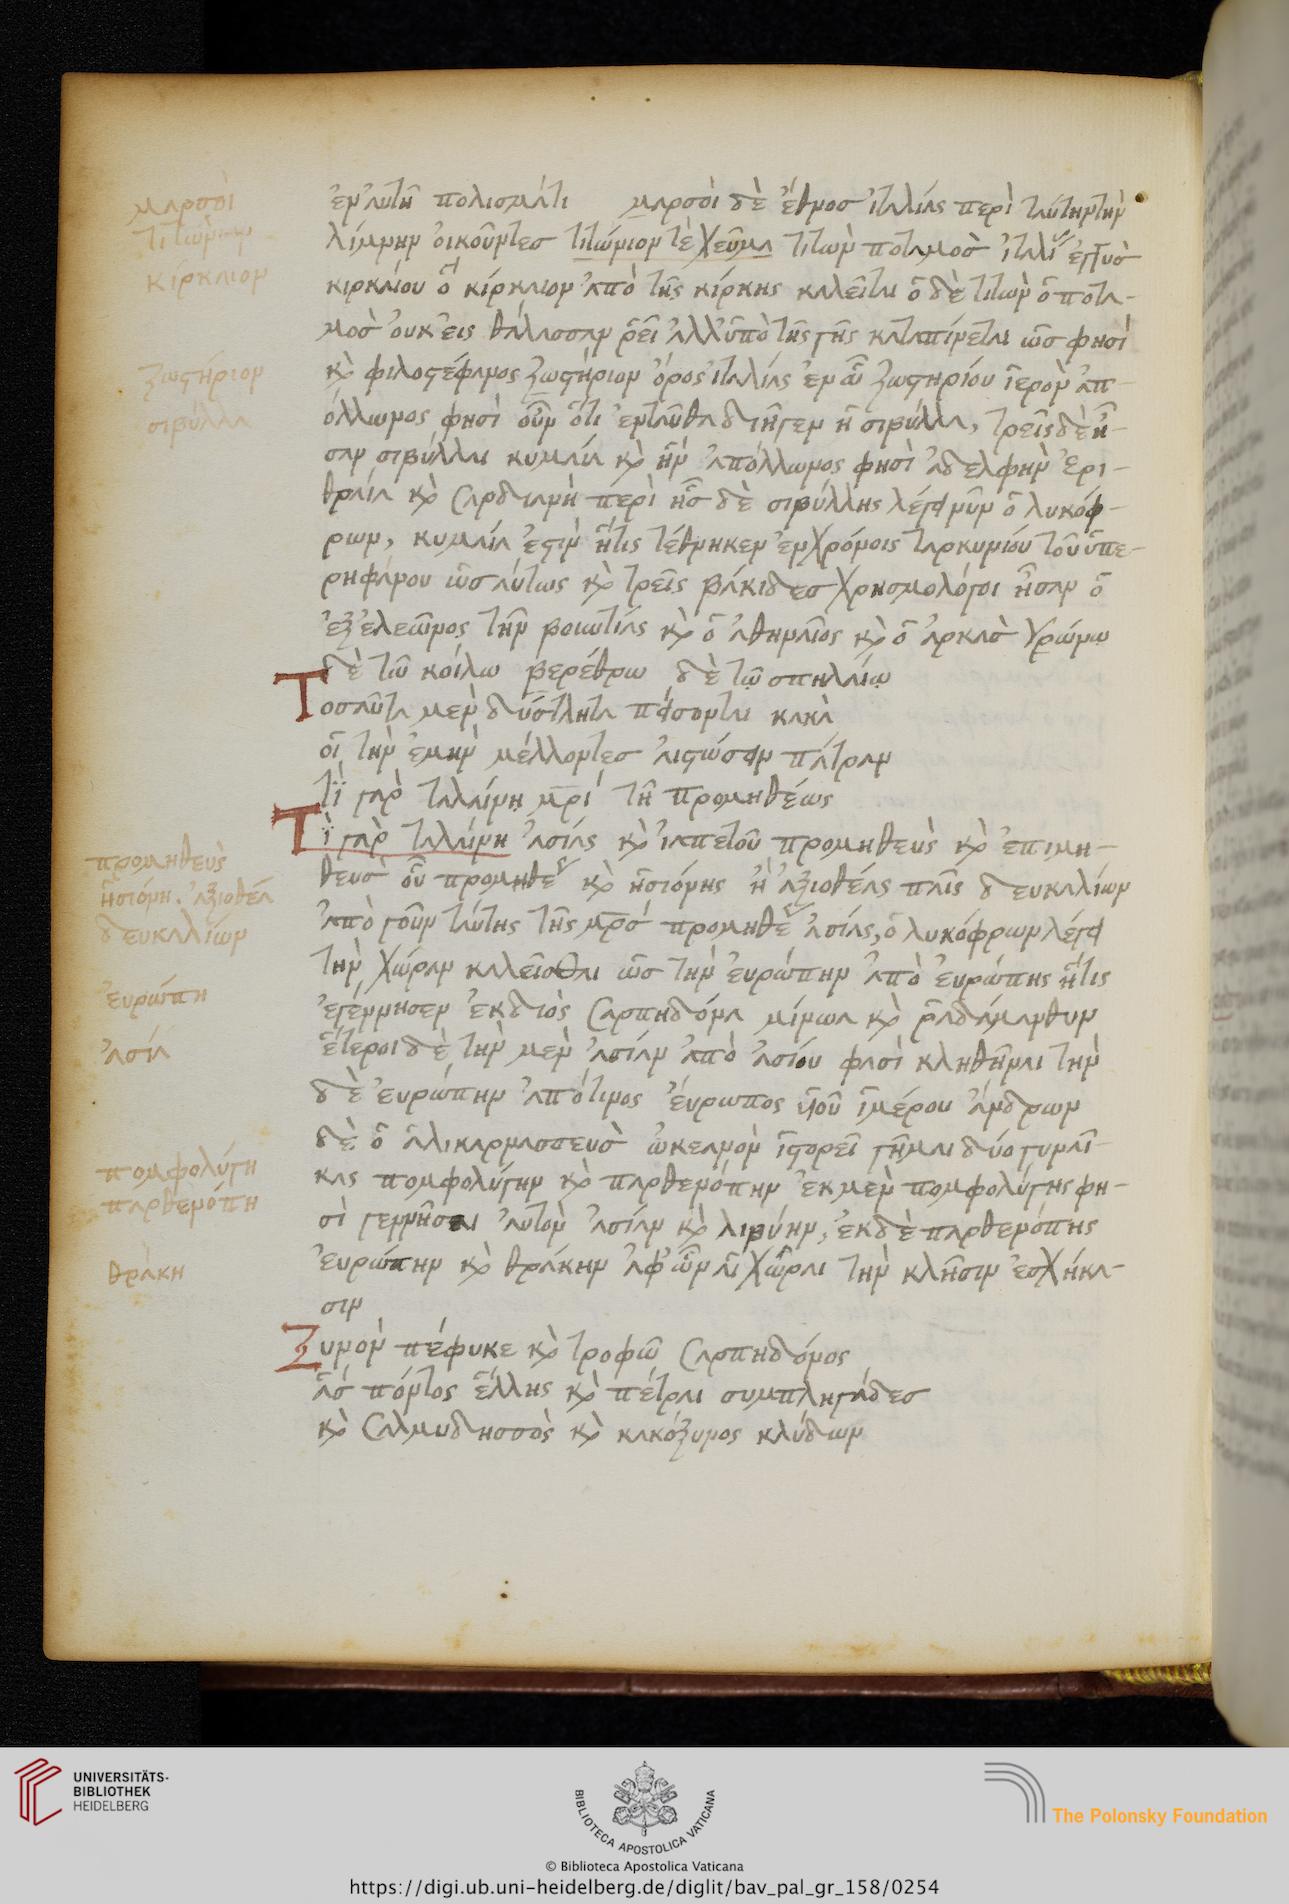 μαρσοὶ
τιτώνιον
κίρκαιον
ζωστήριον
σιβύλλα
ἐν αὐτῆ πολίσματι μαρσοὶ δὲ ἔθνος ἰταλίας περὶ ταύτην τὴν
λίμνην οἰκοῦντες τιτώνιον τὲ χεῦμα τιτὼν ποταμὸς ἰταλί ἐγγὺς
κιρκαίου ὃ κίρκαιον ἀπὸ τῆς κίρκης καλεῖται ὁ δὲ τιτὼν ὁ ποτα-
μὸς οὐκ εἰς θάλασσαν ῥεῖ ἀλλ' ὑπὸ τῆς γῆς καταπίνεται ὥς φησὶ
κὶ φιλοστέφανος ζωστήριον ὄρος ἰταλίας ἐν ὧ ζωστηρίου ἱερὸν ἀπ-
όλλωνος φησὶ οὖν ὅτι ἐνταῦθα διῆγεν ἡ σιβύλλα, τρεῖς δὲ ἦ-
σαν σιβύλλαι κυμαία κὶ ἣν ἀπόλλωνος φησὶ ἀδελφὴν ἐρι-
θραία κὶ σαρδιανὴ περὶ ἧς δὲ σιβύλλης λέγει νῦν ὁ λυκόφ-
ρων, κυμαία ἐστὶν ἥτις τέθνηκεν ἐν χρόνοις ταρκυνίου τοῦ ὑπε-
ρηφάνου ὡσαύτως κὶ τρεῖς βάκιδες χρησμολόγοι ἦσαν ὁ
ἐξ ἐλεῶνος τῆν βοιωτίας κὶ ὁ ἀθηναῖος κὶ ὁ ἀρκὰς γρώνω
δὲ τῶ κοίλω βερέθρω δὲ τῷ σπηλαίῳ
Τοσαῦτα μὲν δύστλητα πείσονται κακὰ
οἱ τὴν ἐμὴν μέλλοντες αἰστώσειν πάτραν
τί γὰρ ταλαίνη μρὶ τῆ προμηθέως
Τὶ γὰρ ταλαίνη ἀσίας κὶ ἰαπετοῦ προμηθεὺς κὶ ἐπιμη-
θεὺς οὗ προμηθε κὶ ἡσιόνης ἢ ἀξιοθέας παῖς δευκαλίων
ἀπὸ γοῦν ταύτης τῆς μρσ προμηθε ἀσίας, ὁ λυκόφρων λέγει
τὴν χώραν καλεῖσθαι ὡς τὴν εὐρώπην ἀπὸ εὐρώπης ἥτις
ἐγέννησεν ἐκ διὸς σαρπηδόνα μίνωα κὶ ῥαδάμανθυν
ἕτεροι δὲ τὴν μὲν ἀσίαν ἀπὸ ἀσίου φασὶ κληθῆναι τὴν
δὲ εὐρώπην ἀπό τινος εὔρωπος υἱοῦ ἱμέρου ἄνδρων
δὲ ὁ ἁλικαρνασσεὺς ὠκεανὸν ἱστορεῖ γῆμαι δύο γυναῖ-
κας πομφολύγην κὶ παρθενόπην ἐκ μὲν πομφολύγης φη-
σὶ γεννῆσαι αὐτὸν ἀσίαν κὶ λιβύην, ἐκ δὲ παρθενόπης
εὐρώπην κὶ θράκην ἀφ' ὧν αἱ χῶραι τὴν κλῆσιν ἐσχήκα-
σιν
Ξυνὸν πέφυκε κὶ τροφῶ σαρπηδόνος
ἅς πόντος ἕλλης κὶ πέτραι συμπληγάδες
κὶ σαλμυδησσὸς κὶ κακόξυνος κλύδων
προμηθεὺς
ἡσιόνη. ἀξιοθέα
δευκαλίων
εὐρώπη
ἀσία
πομφολύγη
παρθενόπη
θράκη
UNIVERSITÄTS-
BIBLIOTHEK
HEIDELBERG
BIBLIOTECA APOSTOLICA VATICANA
The Polonsky Foundation
© Biblioteca Apostolica Vaticana
https://digi.ub.uni-heidelberg.de/diglit/bav_pal_gr_158/0254